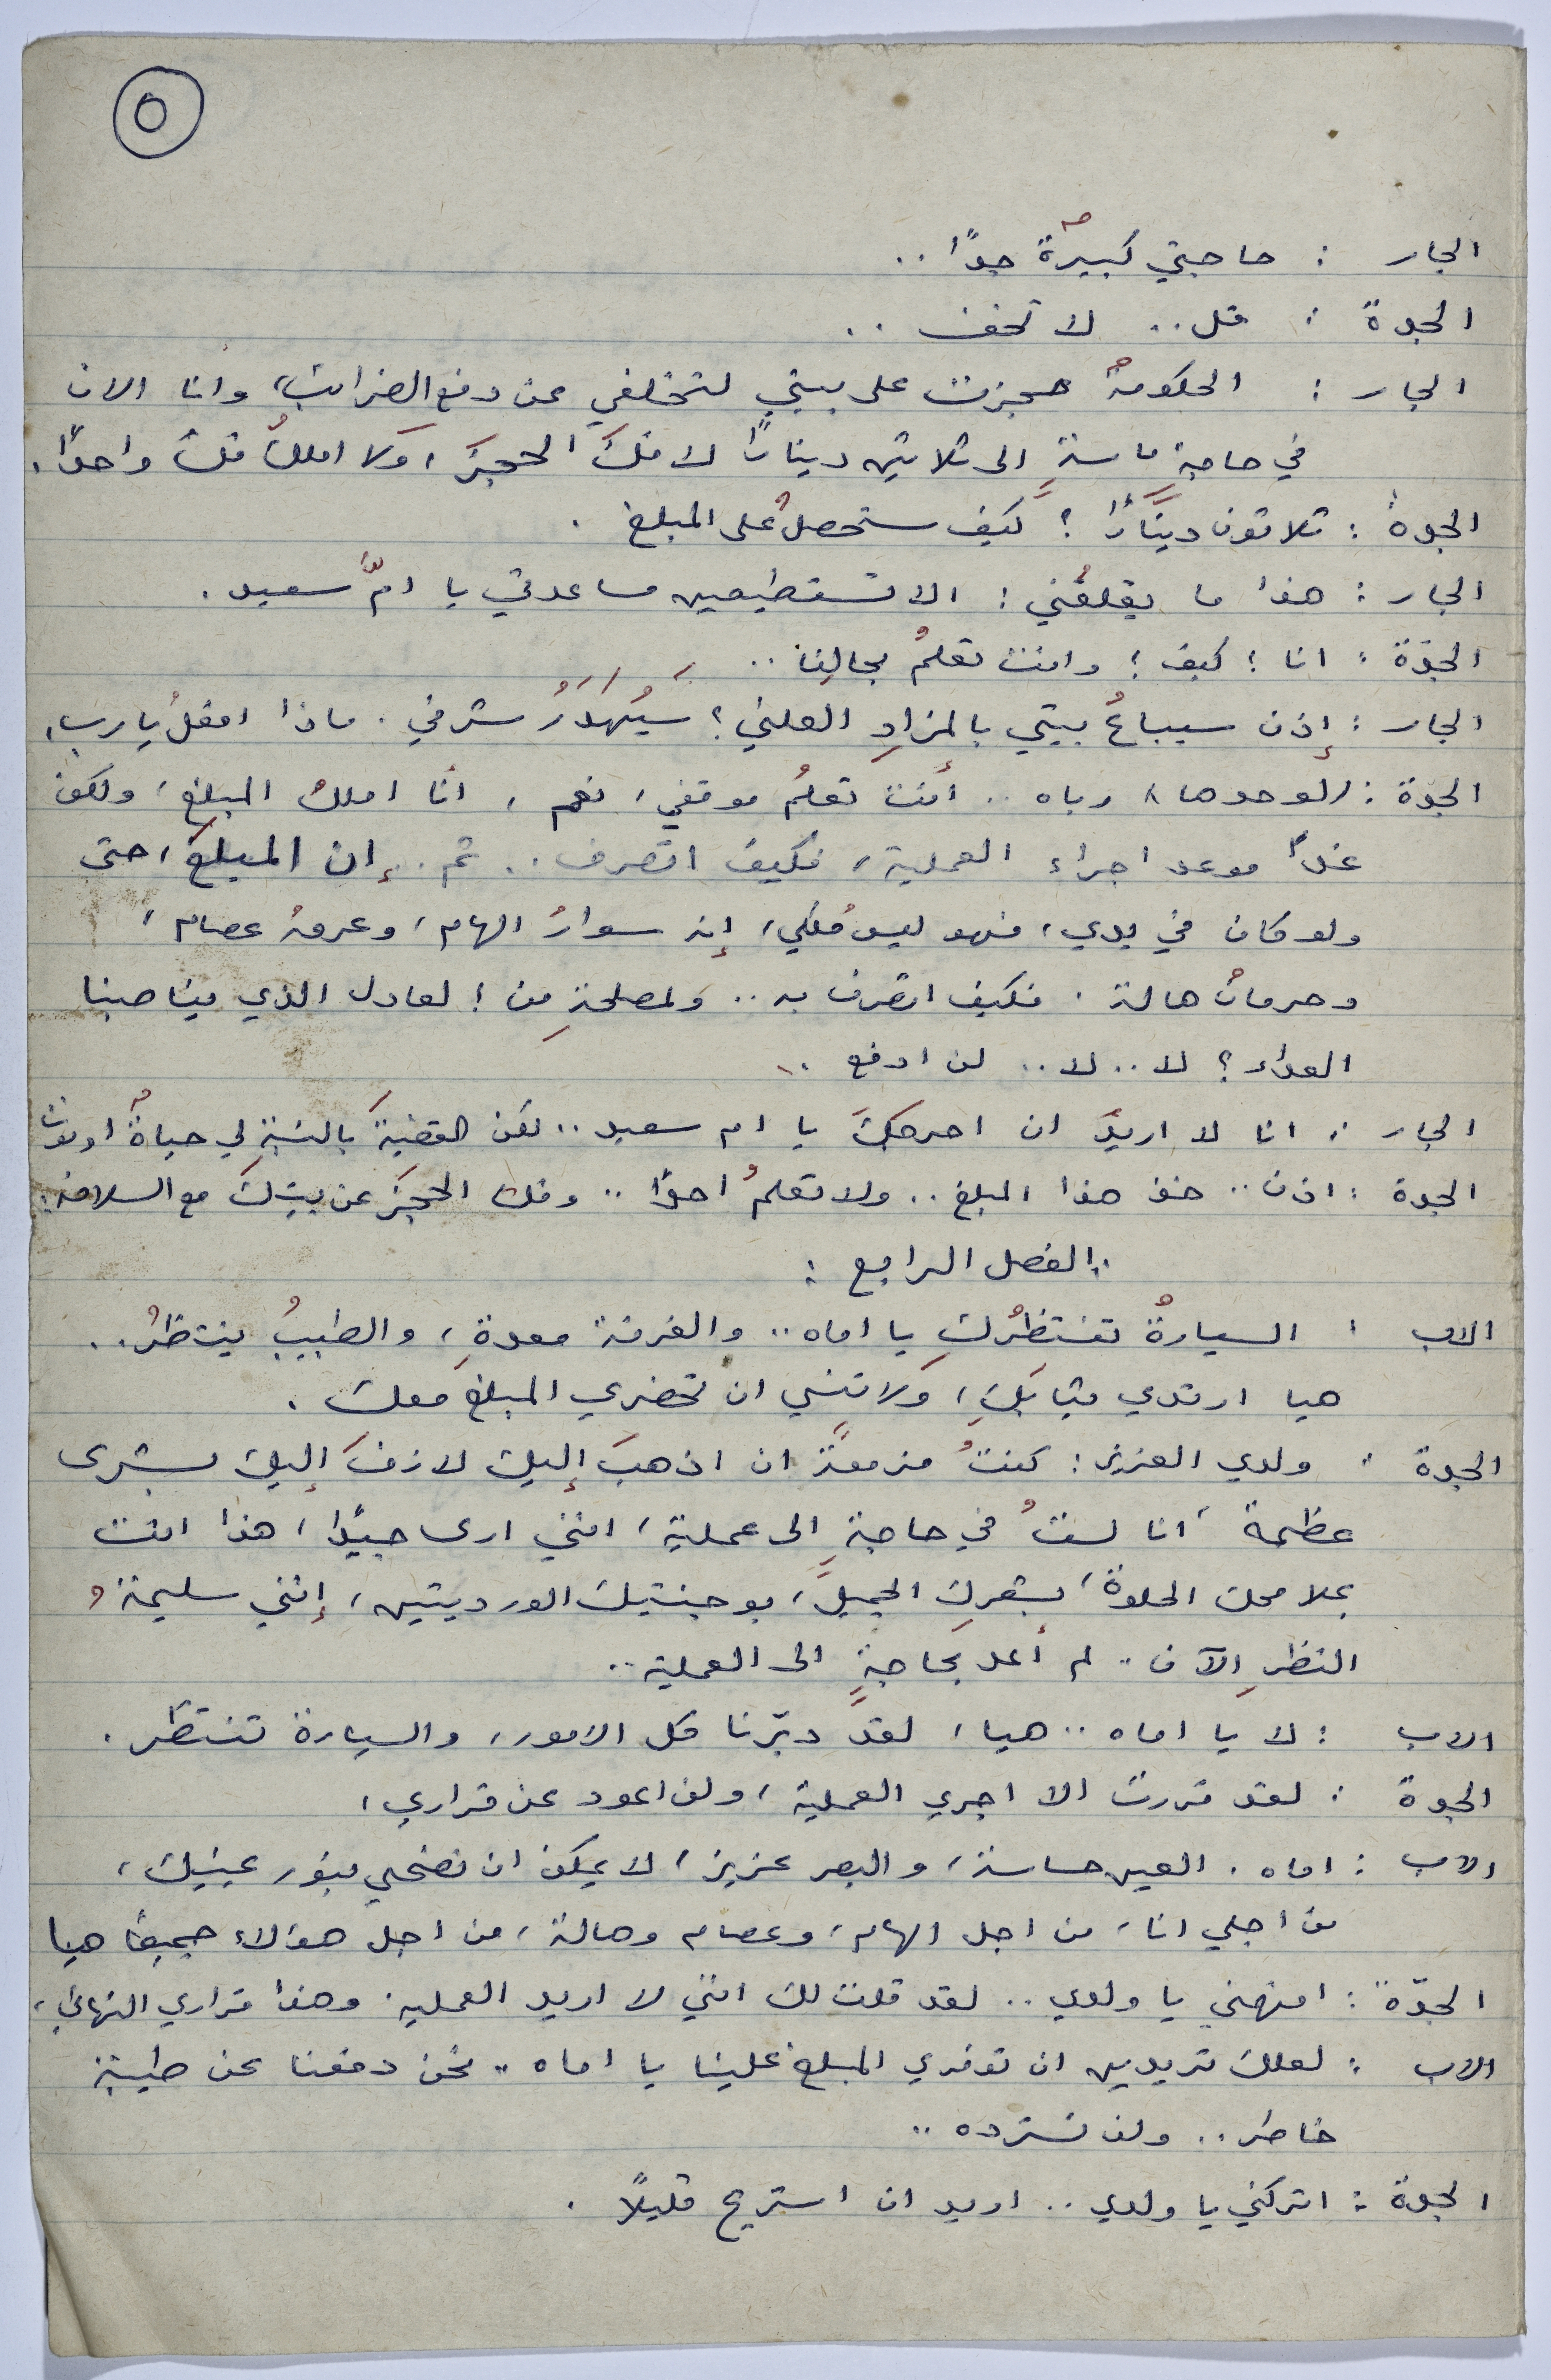 ٥
الجار : حاجتي كبيرةٌ جدًا ..
الجدة : قل .. لا تخف ..
الجار : الحكومةُ حجزت على بيتي لتخلفي عن دفع الضرائب، وأنا الان
في حاجةٍ ماسةٍ الى ثلاثين دينارًا لافكَ الحجزَ، ولا املكُ فلسًا واحدًا.
الجدةُ : ثلاثون دينارًا ؟ كيف ستحصلُ على المبلغ .
الجار : هذا ما يقلقُني : الا تستطيعين مساعدتي يا امَّ سعيد .
الجدّة : انا ؟ كيف ؟ وانت تعلمُ بحالِنا ..
الجار : إذن سيباعُ بيتي بالمزادِ العلني ؟ سَيُهدَرُ شرفي . ماذا افعلُ يا رب .
الجدّة : (لوحدها) رباه .. أنت تعلمُ موقفي، نعم ، انا املكُ المبلغ، ولكن
غدًا موعد اجراء العملية، فكيف اتصرف .. ثم .. إن المبلغَ، حتى
ولو كان في يدي، فهو ليس مُلكي، إنه سوارُ الهام، وعرقُ عصام،
وحرمانُ هالة . فكيف اتصرف به .. ولمصلحةِ من ؟ لعادل الذي يناصبنا
العداء ؟ لا .. لا .. لن ادفع ..
الجار : انا لا اريدُ ان احرجكَ يا ام سعيد .. لكن القضيةَ بالنسبةِ لي حياةٌ او موت
الجدة : اذن .. خذ هذا المبلغ .. ولا تعلمُ احدًا .. وفك الحجزَ عن بيتِكَ مع السلامة .
الفصل الرابع :
الاب : السيارةُ تنتظرُكِ يا اماه .. والغرفة معدةٌ، والطبيبُ ينتظرُ ..
هيا ارتدي ثيابَكِ، ولا تنسي ان تحضري المبلغَ معك .
الجدة : ولدي العزيز : كنتُ مزمعةً ان اذهبَ إليك لازفَ إليك بشرى
عظيمة، انا لستُ في حاجةٍ الى عملية، انني ارى جيدًا، هذا انت
بملامحك الحلوة، بشعرِك الجميل، بوجنتيك الورديتين، إنني سليمةُ
النظرِ الآن .. لم أعد بحاجةٍ الى العملية ..
الاب : لا يا اماه .. هيا، لقد دبّرنا كل الامور، والسيارة تنتظر .
الجدة : لقد قررت الا اجري العملية، ولن اعود عن قراري،
الاب : اماه . العين حساسة، والبصر عزيز، لا يمكن ان نضحي بنور عينيك،
من اجلي انا، من اجل الهام، وعصام وهالة، من اجل هؤلاء جميعًا هيا
الجدّة : افهمني يا ولدي .. لقد قلت لك انني لا اريد العملية . وهذا قراري النهائي،
الاب : لعلك تريدين ان توفري المبلغ علينا يا اماه .. نحن دفعنا عن طيبة
خاطر .. ولن نسترده ..
الجدة : اتركني يا ولدي .. اريد ان استريح قليلًا .